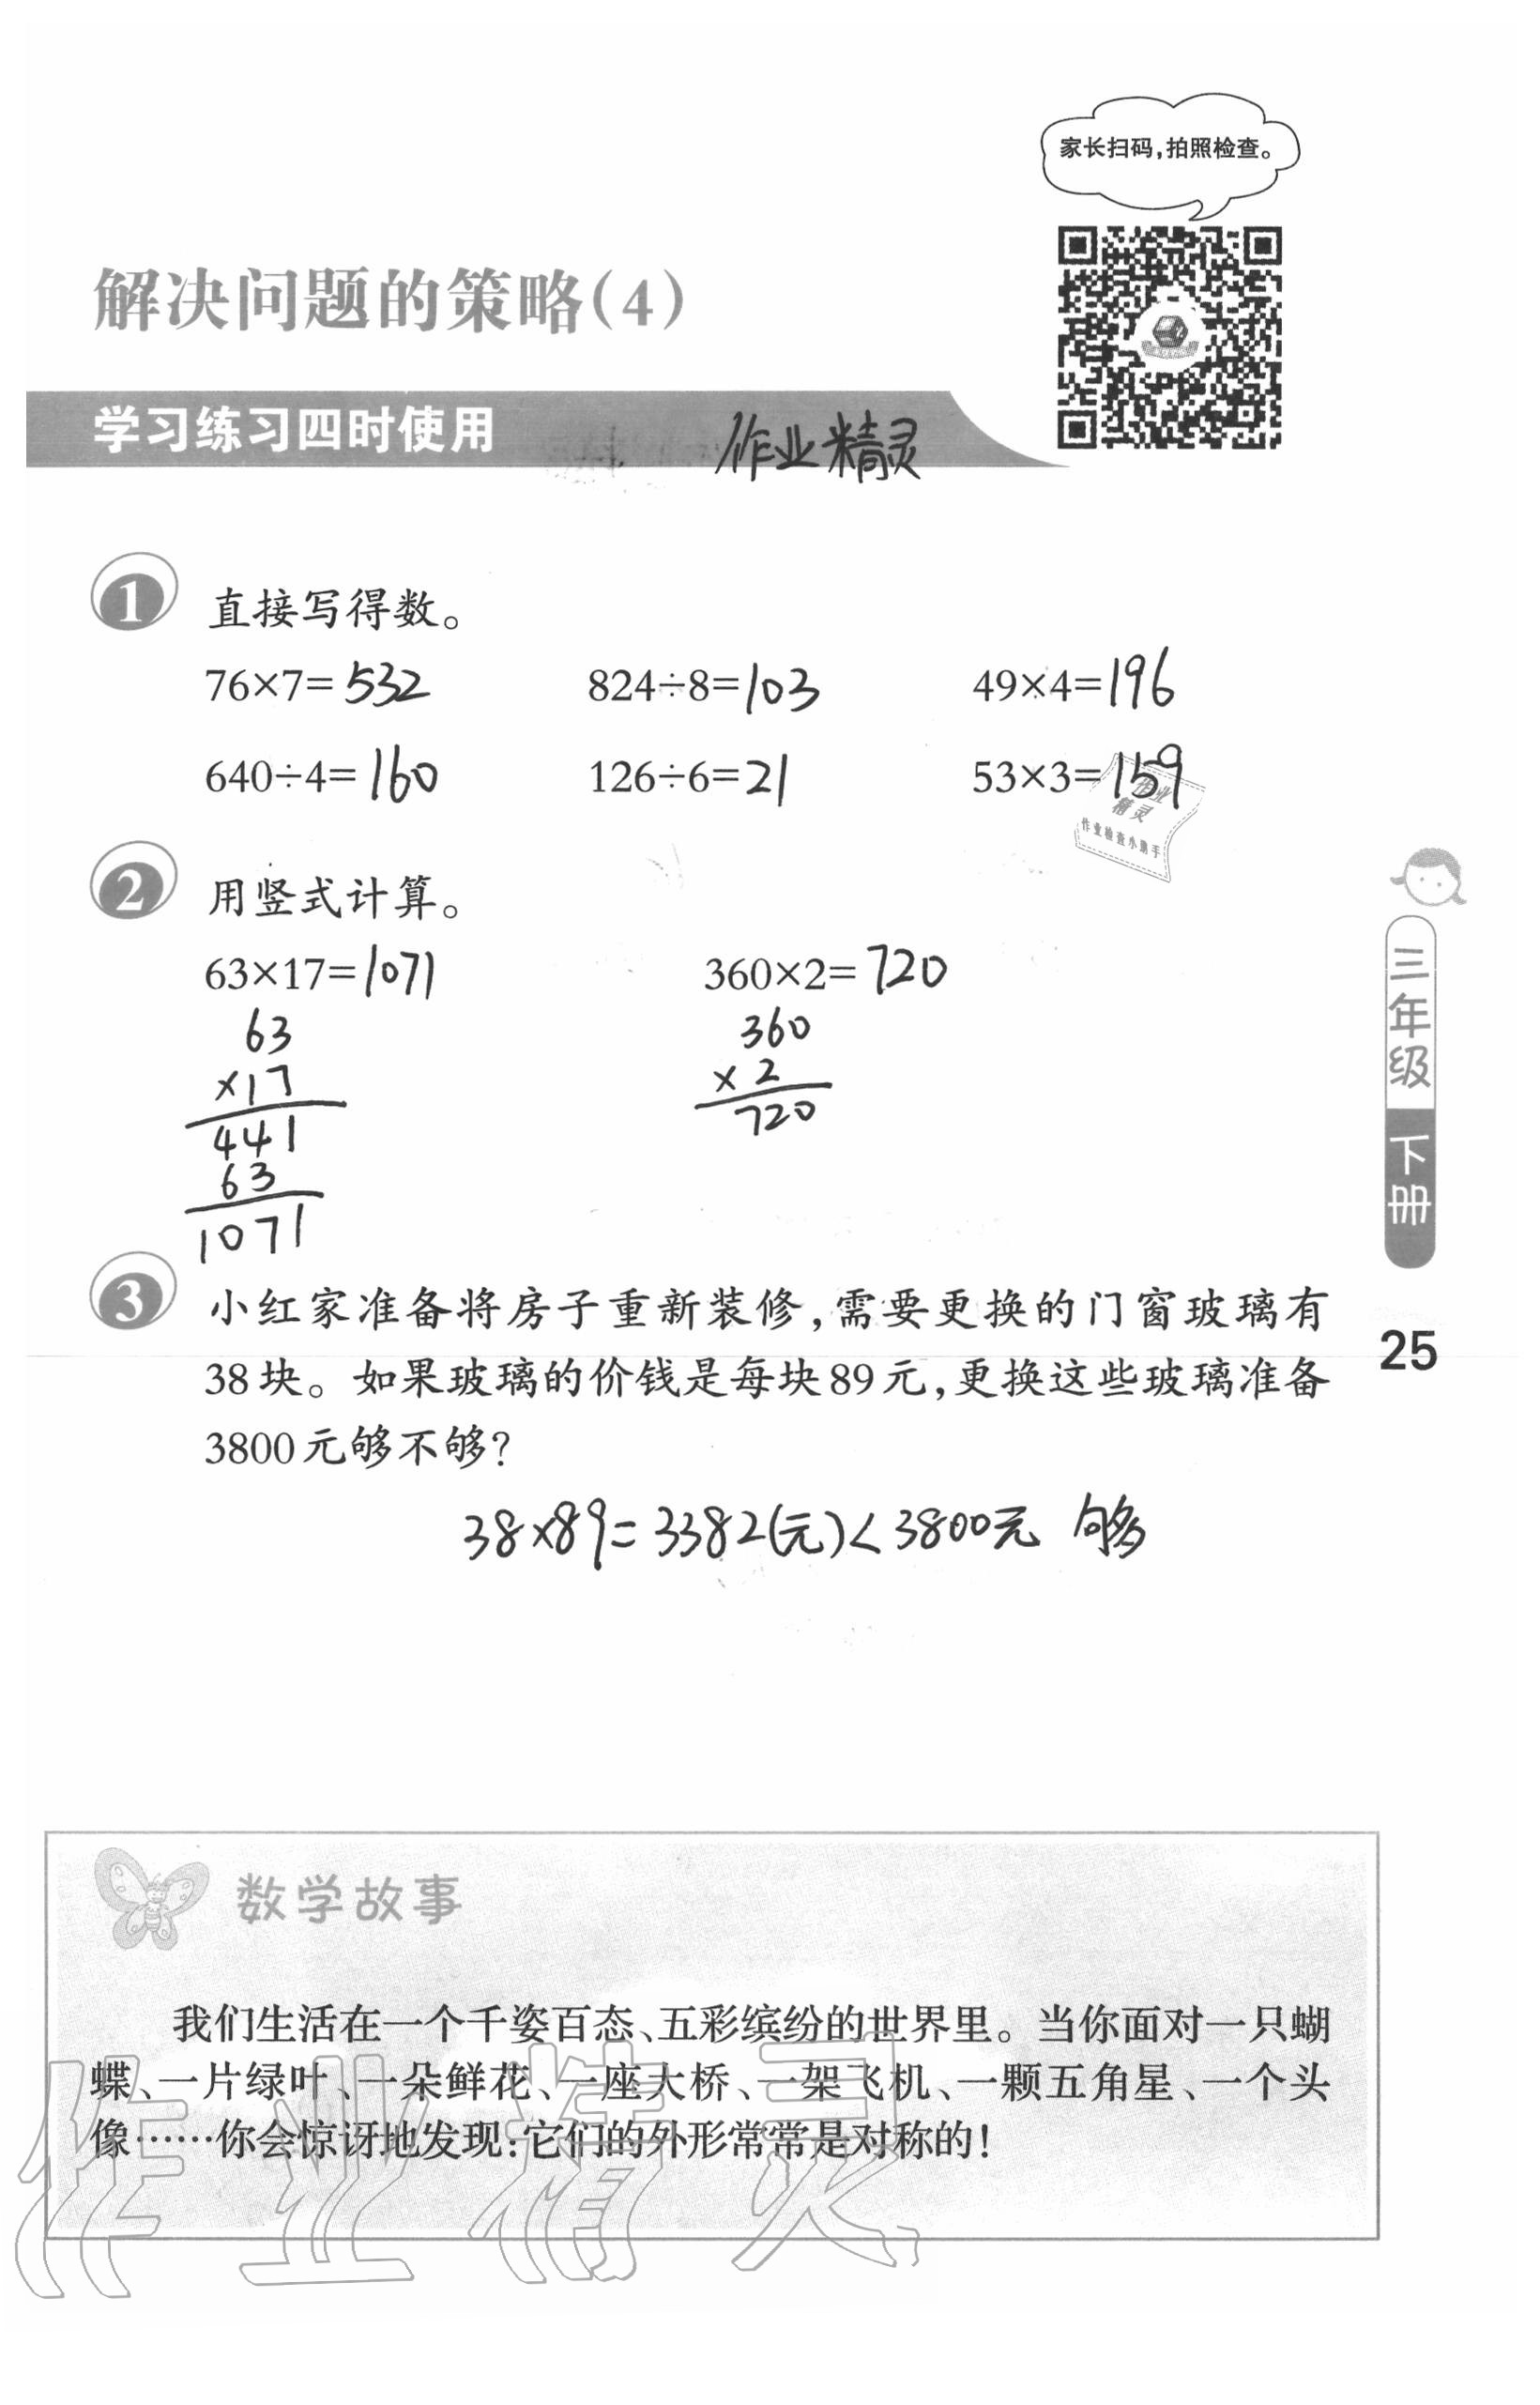 家长扫码,拍照检查。
解决问题的策略(4)
学习练习四时使用
作业精灵
1 直接写得数。
76×7=532 824÷8=103 49×4=196
640÷4=160 126÷6=21 53×3=159
作业
精灵
作业检查小助手
2 用竖式计算。
63×17=1071 360×2=720
63 360
×17 ×2
441 720
63
1071
三年级 下册
25
3 小红家准备将房子重新装修,需要更换的门窗玻璃有
38块。如果玻璃的价钱是每块89元,更换这些玻璃准备
3800元够不够?
38×89=3382(元)<3800元 够
数学故事
我们生活在一个千姿百态、五彩缤纷的世界里。当你面对一只蝴
蝶、一片绿叶、一朵鲜花、一座大桥、一架飞机、一颗五角星、一个头
像……你会惊讶地发现:它们的外形常常是对称的!
作业精灵